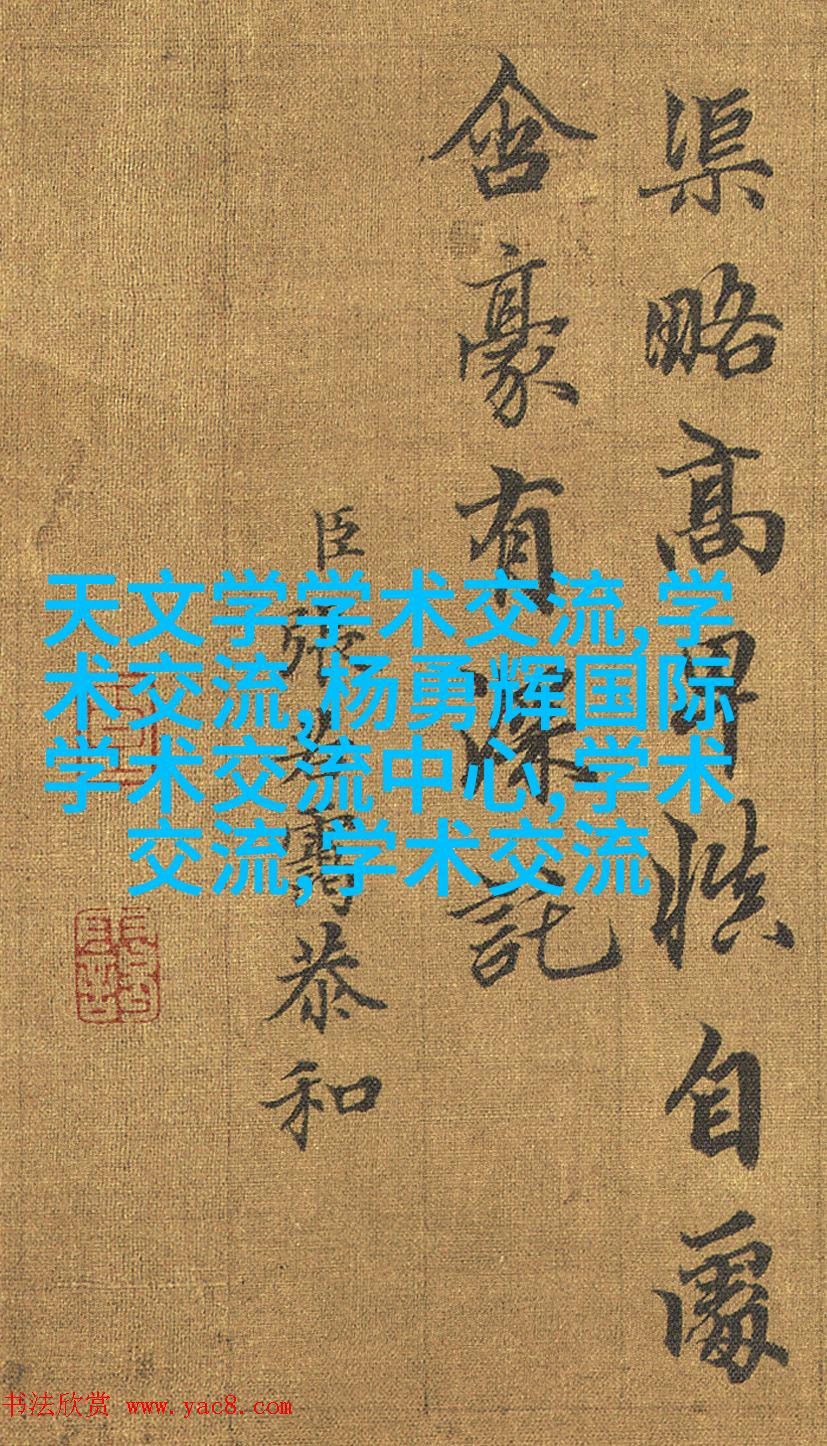 渠略高慎自處
含豪有深託
臣張若靄恭和
天文学学术交流,学
术交流,杨勇辉国际
学术交流中心,学术
交流,学术交流
书法欣赏 www.yac8.com